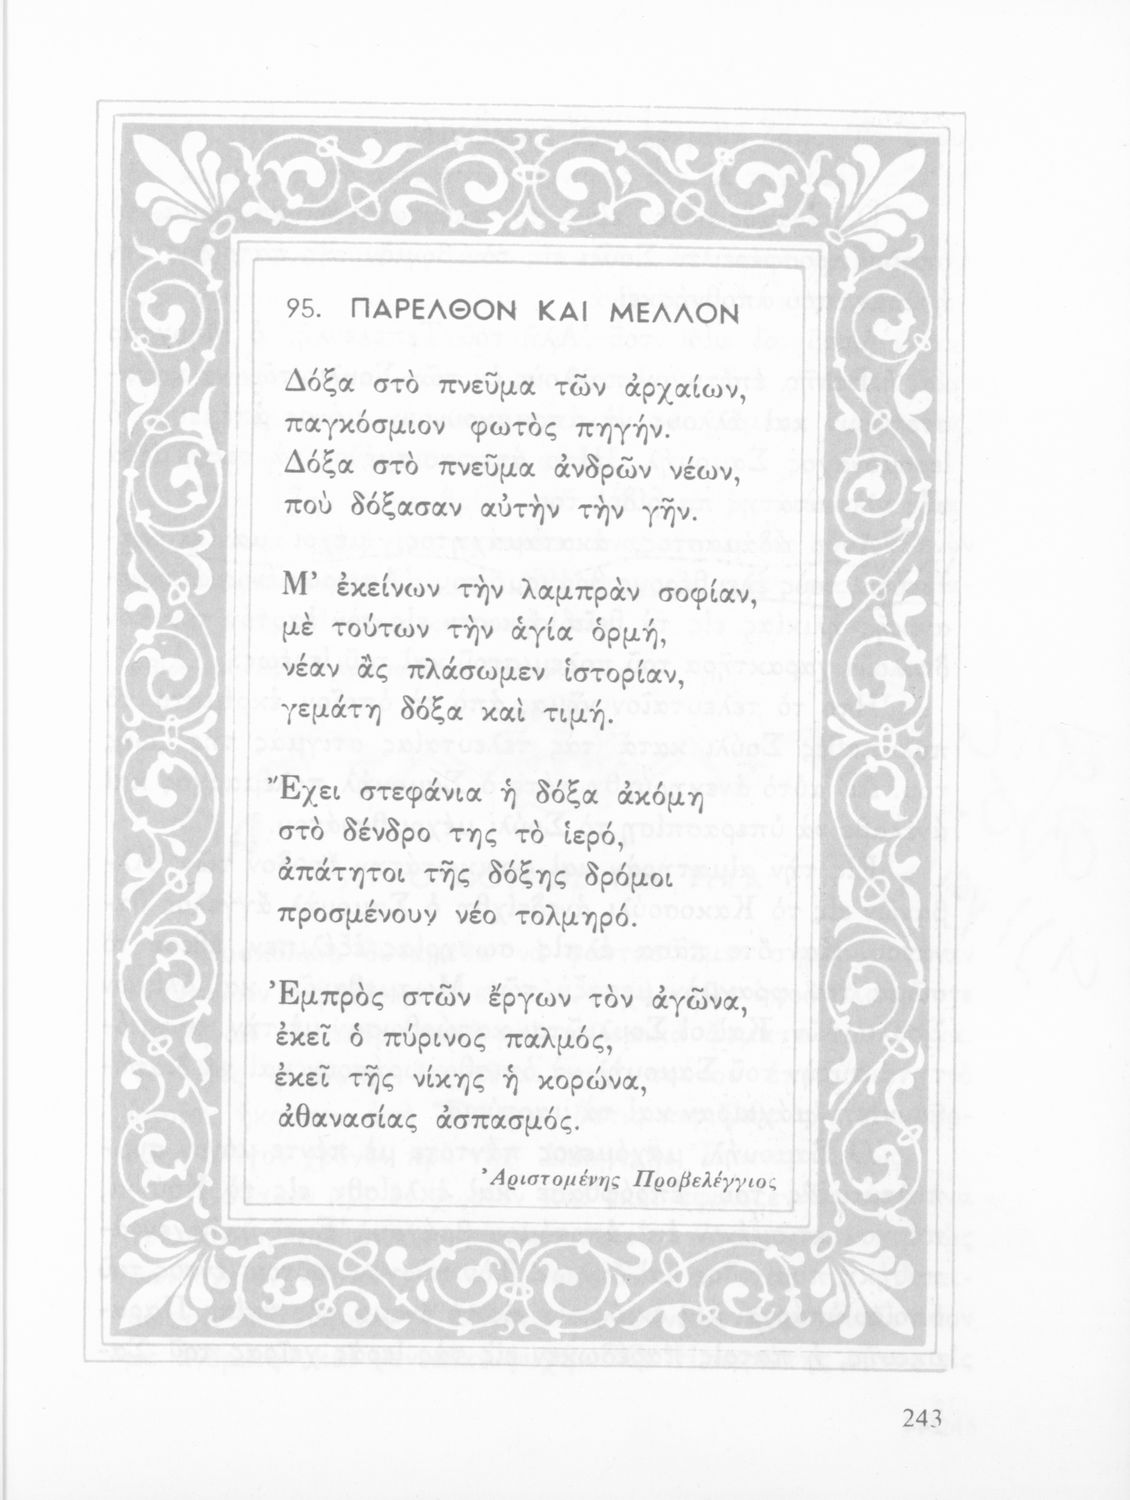 95. ΠΑΡΕΛΘΟΝ ΚΑΙ ΜΕΛΛΟΝ
Δόξα στὸ πνεῦμα τῶν ἀρχαίων,
παγκόσμιον φωτὸς πηγήν.
Δόξα στὸ πνεῦμα ἀνδρῶν νέων,
ποὺ δόξασαν αὐτὴν τὴν γῆν.
Μ’ ἐκείνων τὴν λαμπρὰν σοφίαν,
μὲ τούτων τὴν ἁγία ὁρμή,
νέαν ἂς πλάσωμεν ἱστορίαν,
γεμάτη δόξα καὶ τιμή.
Ἔχει στεφάνια ἡ δόξα ἀκόμη
στὸ δένδρο της τὸ ἱερό,
ἀπάτητοι τῆς δόξης δρόμοι
προσμένουν νέο τολμηρό.
Ἐμπρὸς στῶν ἔργων τὸν ἀγῶνα,
ἐκεῖ ὁ πύρινος παλμός,
ἐκεῖ τῆς νίκης ἡ κορώνα,
ἀθανασίας ἀσπασμός.
Ἀριστομένης Προβελέγγιος
243